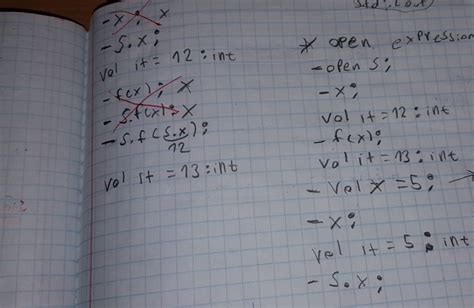 - x ; x
- S.x;
val it = 12 : int
- f(x); x
- S.f(x); x
- S.f(S.x);
12
val it = 13 : int
* open expression
- open S;
- x;
val it = 12 : int
- f(x);
val it = 13 : int
- val x = 5; →
- x;
val it = 5 : int
- S.x;